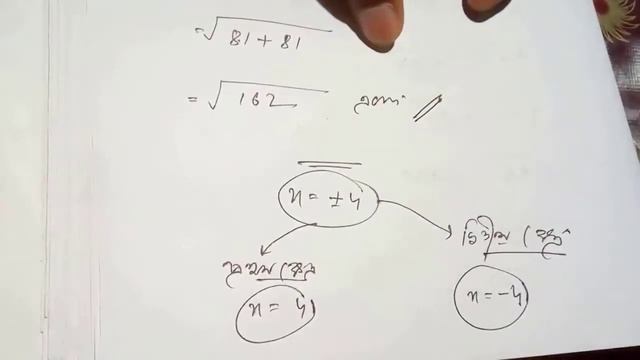 = √81 + 81
= √162 একক
x = ± 4
প্রথম ক্ষেত্রে
x = 4
দ্বিতীয় ক্ষেত্রে
x = -4